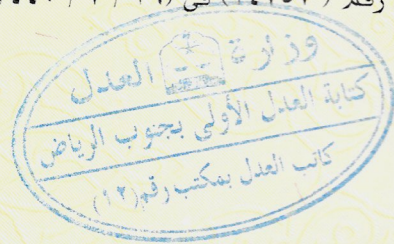 رقم
في
وزارة العدل
كتابة العدل الأولى بجنوب الرياض
كاتب العدل بمكتب رقم (١٢)